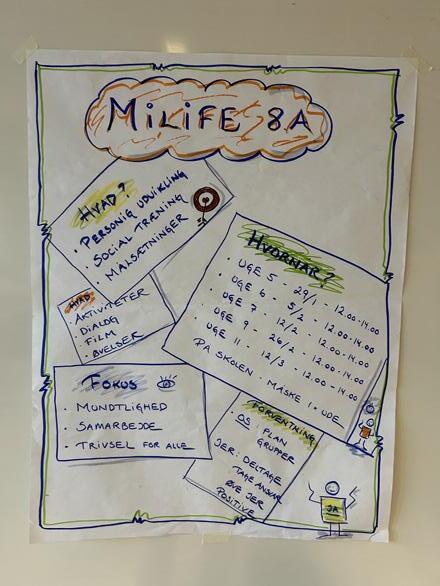 MiLiFE 8A
HVAD?
• PERSONLIG UDVIKLING
• SOCIAL TRÆNING
• MÅLSÆTNINGER
HVORNÅR?
• UGE 5 - 29/1 - 12.00-14.00
• UGE 6 - 5/2 - 12.00-14.00
• UGE 7 - 12/2 - 12.00-14.00
• UGE 9 - 26/2 - 12.00-14.00
UGE 11 - 12/3 - 12.00-14.00
PÅ SKOLEN - MÅSKE 1 UDE
HVAD
• AKTIVITETER
• DIALOG
• FILM
• ØVELSER
FOKUS
• MUNDTLIGHED
• SAMARBEJDE
• TRIVSEL FOR ALLE
FORVENTNING
OS: PLAN
GRUPPER
JER: DELTAGE
TAGE ANSVAR
ØVE JER
POSITIVE
JA